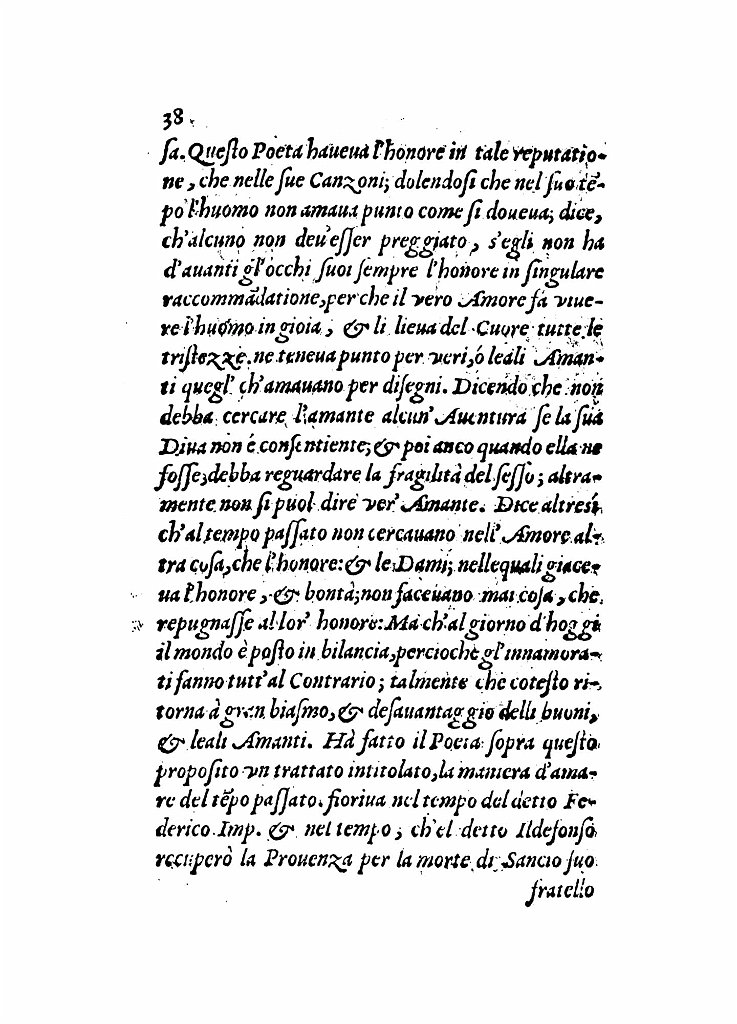 38
ſa. Queſto Poeta haueua l'honore in tale reputatio-
ne, che nelle ſue Canzoni; dolendoſi che nel ſuo tẽ-
po l'huomo non amaua punto come ſi doueua; dice,
ch'alcuno non deu'eſſer preggiato, s'egli non ha
d'auanti gl'occhi ſuoi ſempre l'honore in ſingulare
raccommãdatione, perche il vero Amore fà viue-
re l'huomo in gioia, & li lieua del Cuore tutte le
triſtezze. ne teneua punto per veri, ó leali Aman-
ti quegl' ch'amauano per diſegni. Dicendo che non
debba cercare l'amante alcun' Auentura ſe la ſua
Diua non é conſentiente; & poi anco quando ella ne
foſſe, debba reguardare la fragilità del ſeſſo; altra-
mente non ſi puol dire ver' Amante. Dice altresì,
ch'al tempo paſſato non cercauano nell' Amore al-
tra coſa, che l'honore: & le Dami; nellequali giace-
ua l'honore, & bontà; non faceuano mai coſa, che
repugnaſſe al lor' honore: Ma ch'al giorno d'hoggi
il mondo è poſto in bilancia, percioche gl'innamora-
ti fanno tutt'al Contrario; talmente che coteſto ri-
torna à gran biaſmo, & deſauantaggio delli buoni,
& leali Amanti. Hà fatto il Poeta ſopra queſto
propoſito vn trattato intitolato, la maniera d'ama-
re del tẽpo paſſato. fioriua nel tempo del detto Fe-
derico Imp. & nel tempo, ch'el detto Ildefonſo
recuperò la Prouenza per la morte di Sancio ſuo
fratello